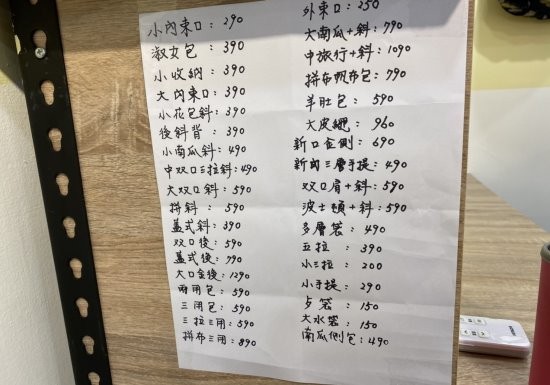 小內束口：290
淑女包：390
小收納：390
大內束口：390
小花包斜：390
後斜背：390
小南瓜斜：490
中双口三拉斜：490
大双口斜：590
拼斜：590
蓋式斜：390
双口後：590
蓋式後：790
大口金後：1290
兩用包：590
三用包：590
三拉三用：590
拼布三用：890
外束口：250
大南瓜+斜：790
中旅行+斜：1090
拼布帆布包：790
羊肚包：590
大皮繩：960
新口金側：690
新內三層手提：490
双口肩+斜：590
波士頓+斜：590
多層袋：490
五拉：390
小三拉：200
小手提：290
卢袋：150
大水袋：150
南瓜側包：490